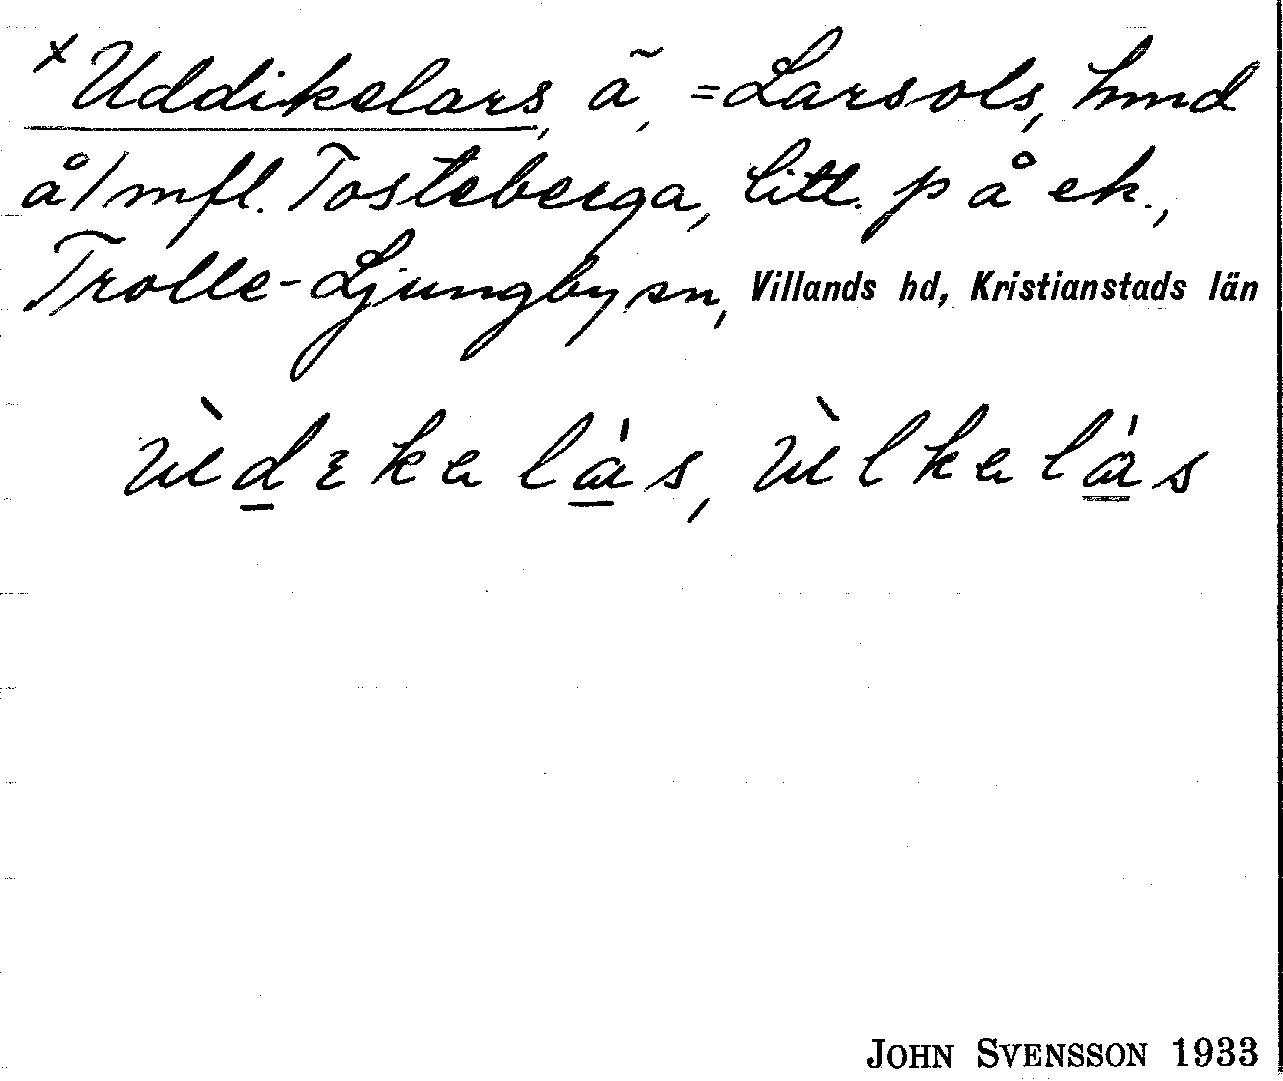 x Uddikelars, ã, = Larsols, hmd
å/mfl. Tosteberga, litt. på ek.,
Trolle-Ljungby sn, Villands hd, Kristianstads län
JOHN SVENSSON 1933